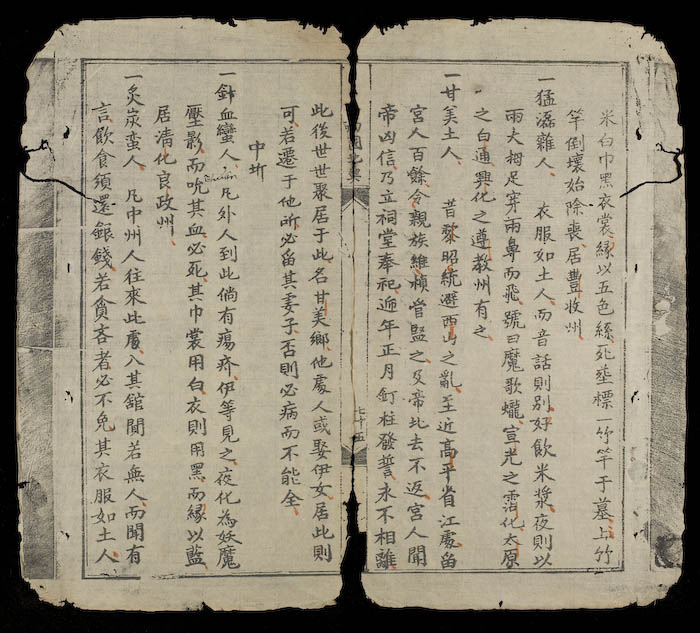 米白巾黑衣裳緣以五色絲死塟標一竹竿于墓上竹
竿倒壞始除喪居豊收州
一猛潺雜人 衣服如土人而音話則別好飲米漿夜則以
兩大拇足穿兩鼻而飛號曰魔歌蠬宣光之霑化太原
之白通興化之遵教州有之
一甘美土人 昔黎昭統避西山之亂至近高平省江處畱
宮人百餘令親族維禎管監之及帝北去不返宮人聞
帝凶信乃立祠堂奉祀逓年正月釘柱發誓永不相離
七十五
此後世世聚居于此名甘美鄉他處人或娶伊女居此則
可若遷于他所必畱其妻子否則必病而不能全
中圻
一針血蠻人 凡外人到此倘有瘍疥伊等見之夜化為妖魔
壓影而吮其血必死其巾裳用白衣則用黑而緣以藍
居清化良政州
一炙炭蛮人 凡中州人往來此處入其舘閴若無人而聞有
言飲食須還銀錢若貪吝者必不免其衣服如土人